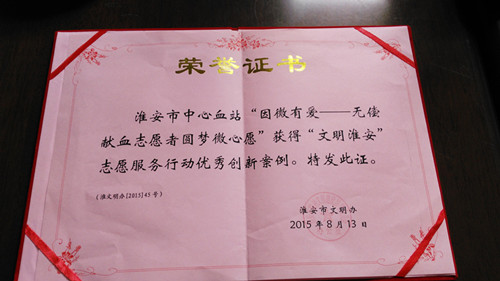 荣誉证书
淮安市中心血站“因微有爱——无偿
献血志愿者圆梦微心愿”获得“文明淮安”
志愿服务行动优秀创新案例。特发此证。
（淮文明办[2015]45号）
淮安市文明办
2015年8月13日